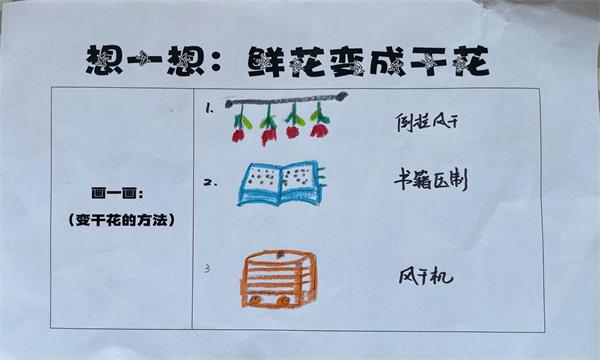 想一想：鲜花变成干花
画一画：
（变干花的方法）
1. 倒挂风干
2. 书籍压制
3 风干机